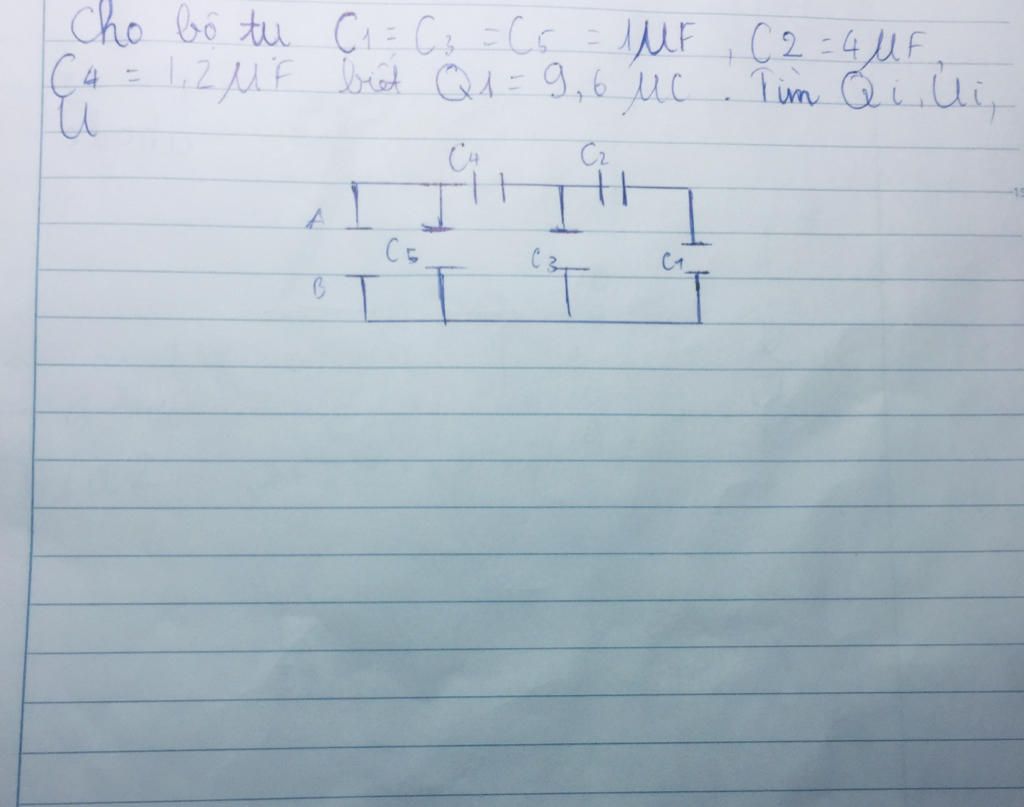 Cho bộ tu C1 = C3 = C5 = 1µF, C2 = 4µF,
C4 = 1,2µF biết Q1 = 9,6 µC. Tìm Qi, Ui,
U
C4 C2
A
C5 C3 C1
B